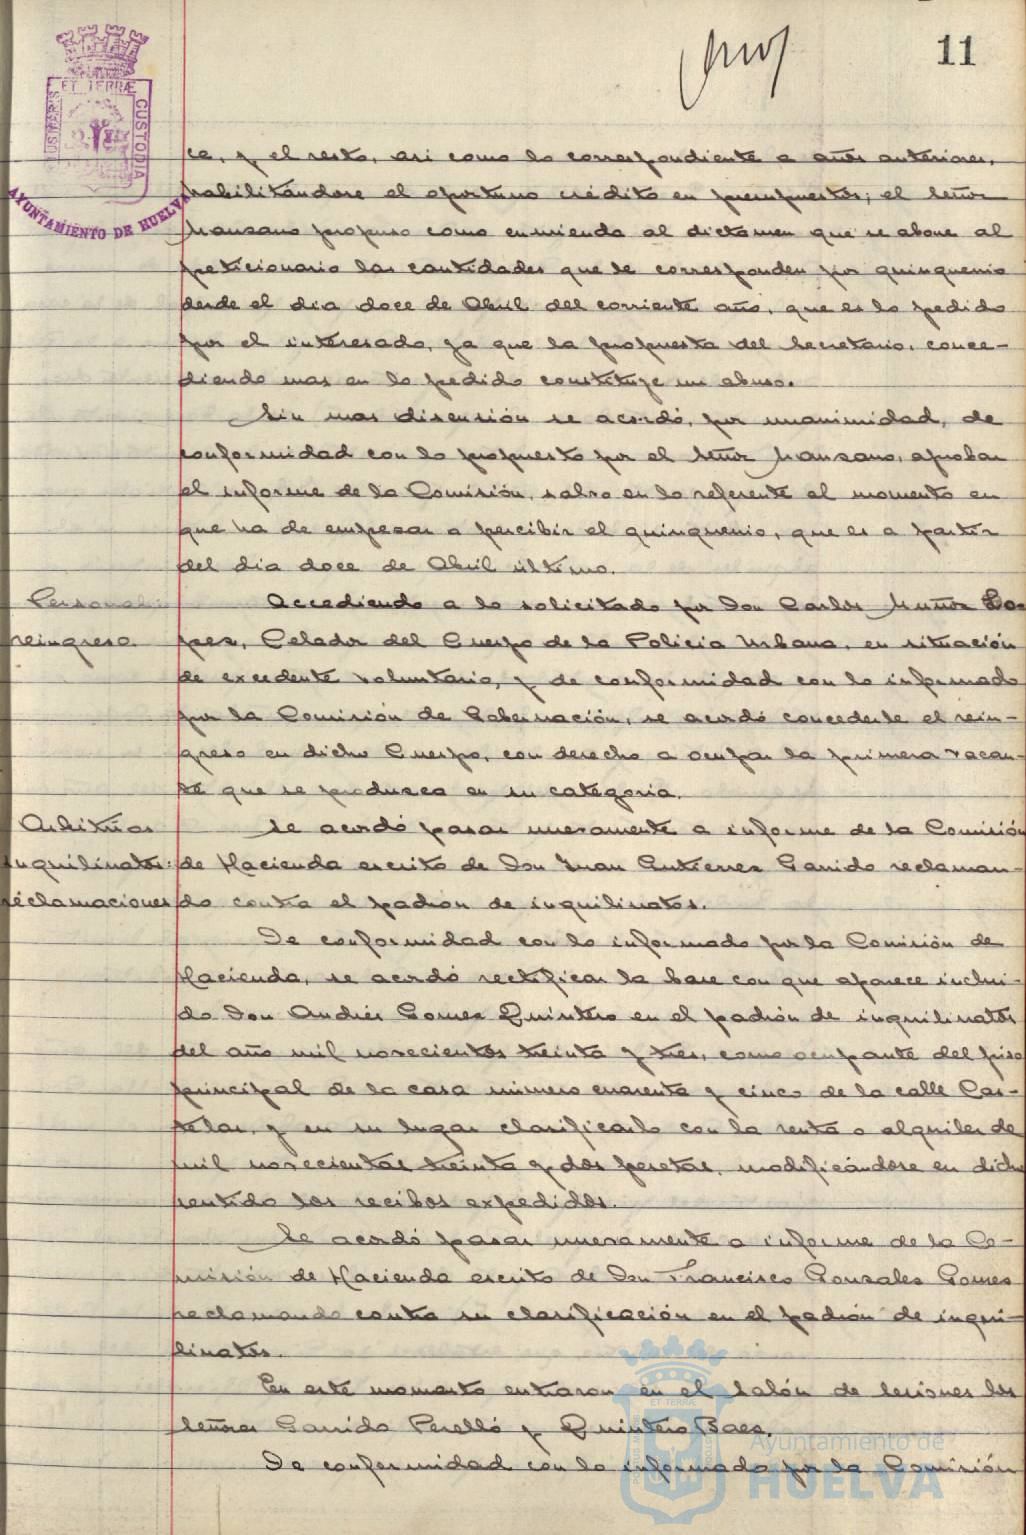 11
PORTUS MARIS ET TERRÆ CUSTODIA
AYUNTAMIENTO DE HUELVA
ce, y el resto, asi como lo correspondiente a años anteriores,
habilitándose el oportuno crédito en presupuestos; el Señor
Manzano propuso como enmienda al dictamen que se abone al
peticionario las cantidades que le corresponden por quinquenio
desde el dia doce de Abril del corriente año, que es lo pedido
por el interesado, ya que la propuesta del Secretario, conce-
diendo mas en lo pedido constituye un abuso.
Sin mas discusión se acordó, por unanimidad, de
conformidad con lo propuesto por el Señor Manzano, aprobar
el informe de la Comisión, salvo en lo referente al momento en
que ha de empezar a percibir el quinquenio, que es a partir
del dia doce de Abril último.
Personal:
reingreso.
Accediendo a lo solicitado por Don Carlos Muñoz Lo-
pez, Celador del Cuerpo de la Policia Urbana, en situación
de excedente voluntario, y de conformidad con lo informado
por la Comisión de Gobernación, se acordó concederle el rein-
greso en dicho Cuerpo, con derecho a ocupar la primera vacan-
te que se produzca en su categoria.
Arbitrios
inquilinatos:
reclamaciones
Se acordó pasar nuevamente a informe de la Comisión
de Hacienda escrito de Don Juan Gutierrez Garrido reclaman-
do contra el padron de inquilinatos.
De conformidad con lo informado por la Comisión de
Hacienda, se acordó rectificar la base con que aparece inclui-
do Don Andrés Gomez Quintero en el padrón de inquilinatos
del año mil novecientos treinta y tres, como ocupante del piso
principal de la casa número cuarenta y cinco de la calle Cas-
telar, y en su lugar clasificarlo con la renta o alquiler de
mil novecientas treinta y dos pesetas, modificándose en dicho
sentido los recibos expedidos.
Se acordó pasar nuevamente a informe de la Co-
misión de Hacienda escrito de Don Francisco Gonzalez Gomez
reclamando contra su clasificación en el padrón de inqui-
linatos.
En este momento entraron en el Salón de Sesiones los
Señores Garrido Perelló y Quintero Baez.
De conformidad con lo informado por la Comisión
Ayuntamiento de
HUELVA